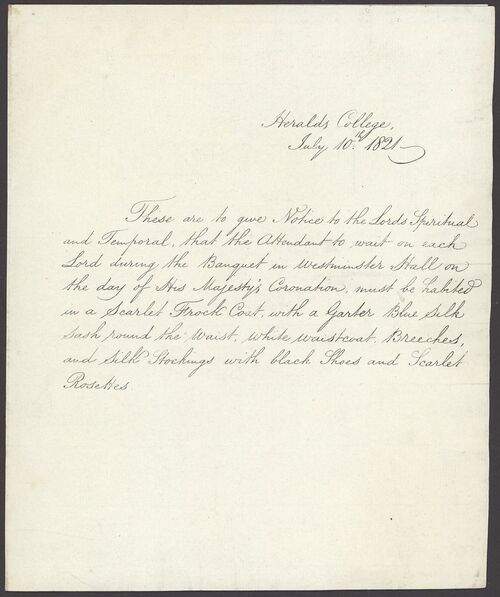 Heralds College,
July 10.th 1821
These are to give Notice to the Lords Spiritual
and Temporal, that the Attendant to wait on each
Lord during the Banquet in Westminster Hall on
the day of His Majesty's Coronation, must be habited
in a Scarlet Frock Coat, with a Garter Blue Silk
Sash round the Waist, white waistcoat, Breeches,
and Silk Stockings with black Shoes and Scarlet
Rosettes.